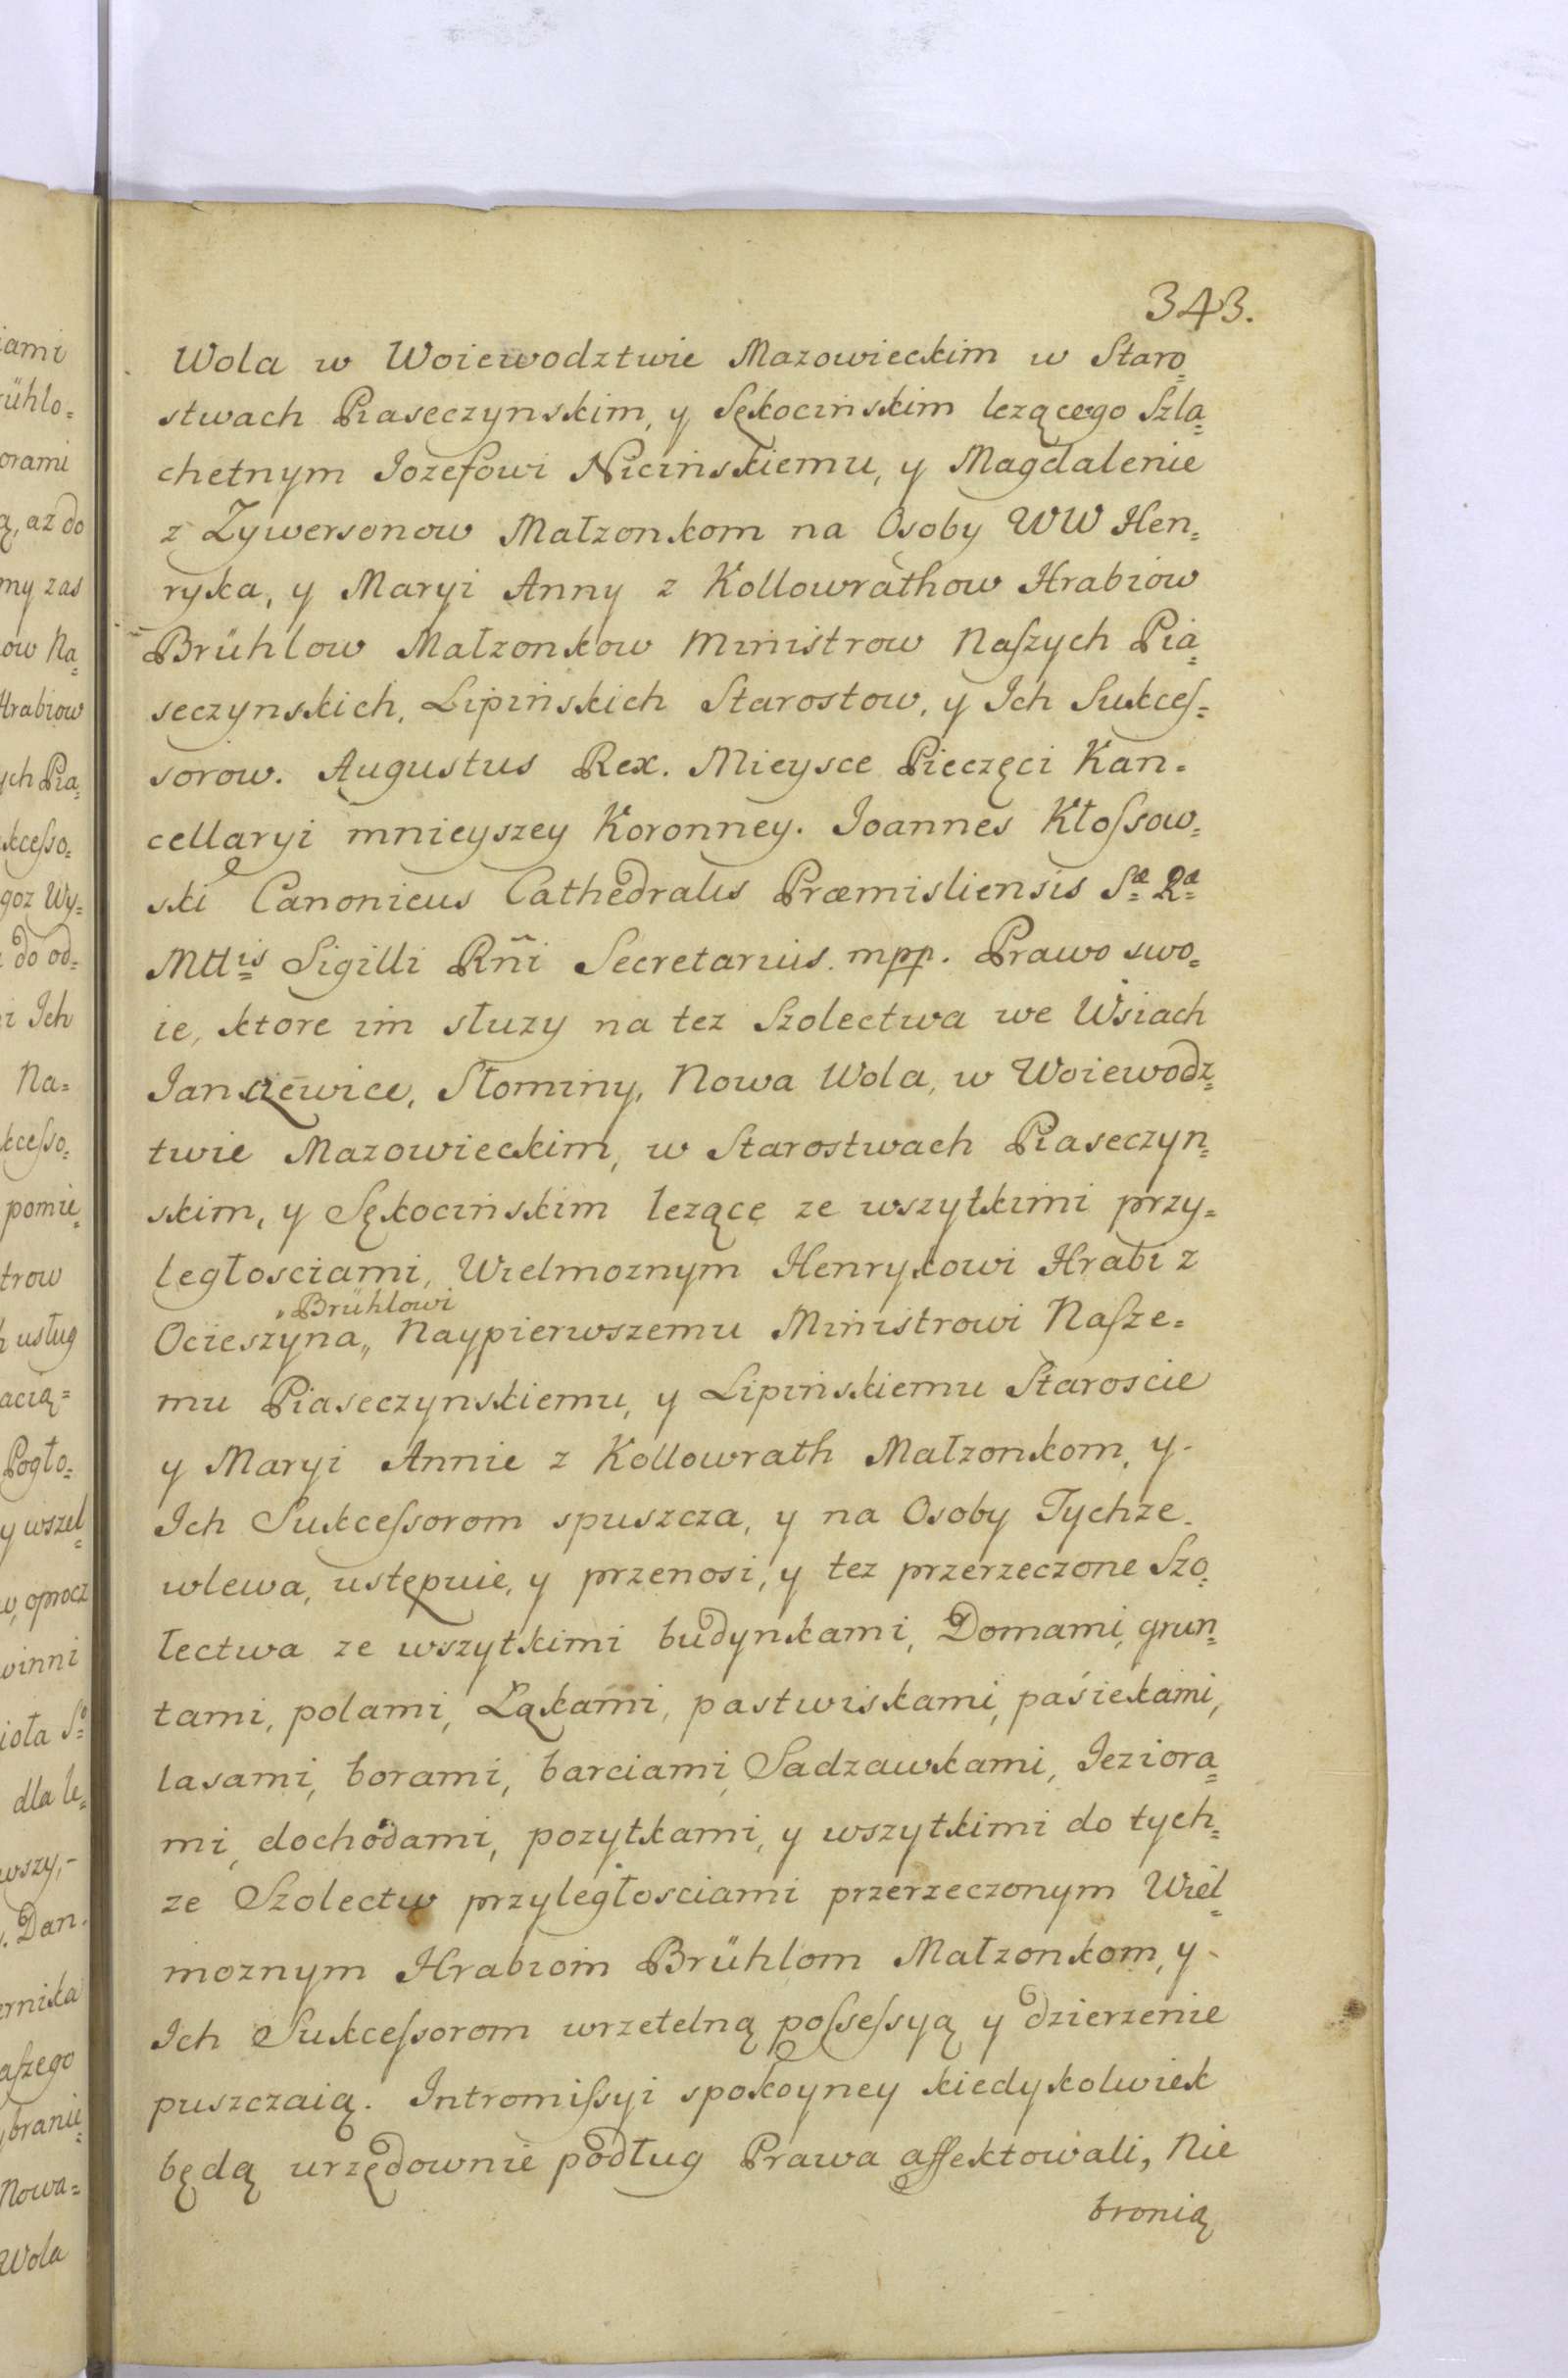 343.
Wola w Woiewodztwie Mazowieckim w Staro=
stwach Piaseczynskim, y Sękocińskim lezącego Szla=
chetnym Iozefowi Nicińskiemu, y Magdalenie
z Zywersonow Małzonkom na Osoby WW Hen=
ryka, y Maryi Anny z Kollowrathow Hrabiow
Brühlow Małzonkow Ministrow Naſzych Pia=
seczynskich, Lipińskich Starostow, y Ich Sukceſ=
sorow. Augustus Rex. Mieysce Pieczęci Kan=
cellaryi mnieyszey Koronney. Ioannes Kłoſsow=
ski Canonicus Cathedralis Præmisliensis Sæ Ræ
Mttis Sigilli Rñi Secretarius. mpp. Prawo swo=
ie, ktore im słuzy na tez Szolectwa we Wsiach
Ianczewice, Słominy, Nowa Wola, w Woiewodz=
twie Mazowieckim, w Starostwach Piaseczyn=
skim, y Sękocińskim lezące ze wszytkimi przy=
ległosciami, Wielmoznym Henrykowi Hrabi z
„Brühlowi
Ocieszyna„ Naypierwszemu Ministrowi Naſze=
mu Piaseczynskiemu, y Lipińskiemu Staroscie
y Maryi Annie z Kollowrath Małzonkom, y
Ich Sukceſsorom spuszcza, y na Osoby Tychze
wlewa, ustępuie, y przenosi, y tez przerzeczone Szo=
łectwa ze wszytkimi budynkami, Domami, grun=
tami, polami, Łąkami, pastwiskami, paśiekami,
lasami, borami, barciami, Sadzawkami, Ieziora=
mi, dochodami, pozytkami, y wszytkimi do tych=
ze Szolectw przyległosciami przerzeczonym Wiel=
moznym Hrabiom Brühlom Małzonkom, y
Ich Sukceſsorom wrzetelną poſseſsyą y dzierzenie
puszczaią. Intromiſsyi spokoyney kiedykolwiek
będą urzędownie podług Prawa affektowali, Nie
bronią